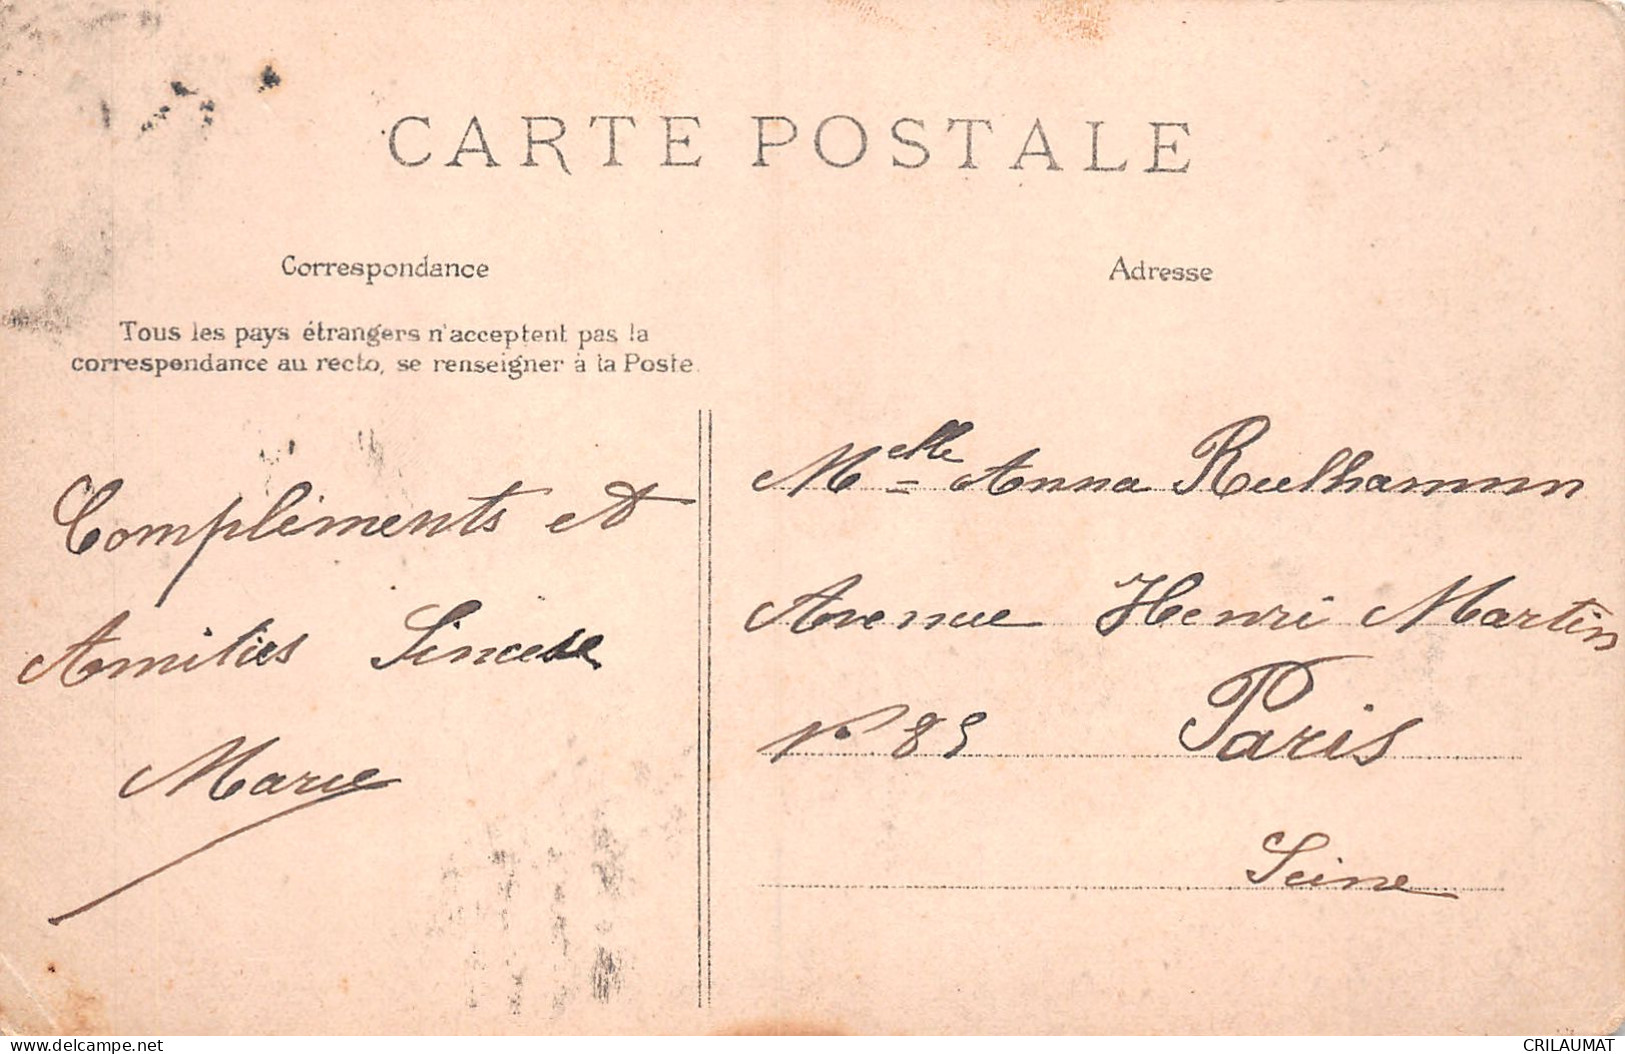 CARTE POSTALE
Correspondance
Tous les pays étrangers n'acceptent pas la
correspondance au recto, se renseigner à la Poste.
Compléments et
Amities Sincese
Marie
Adresse
Melle Anna Rulhamn
Avenue Henri Martin
No 85 Paris
Seine
delcampe.net
CRILAUMAT